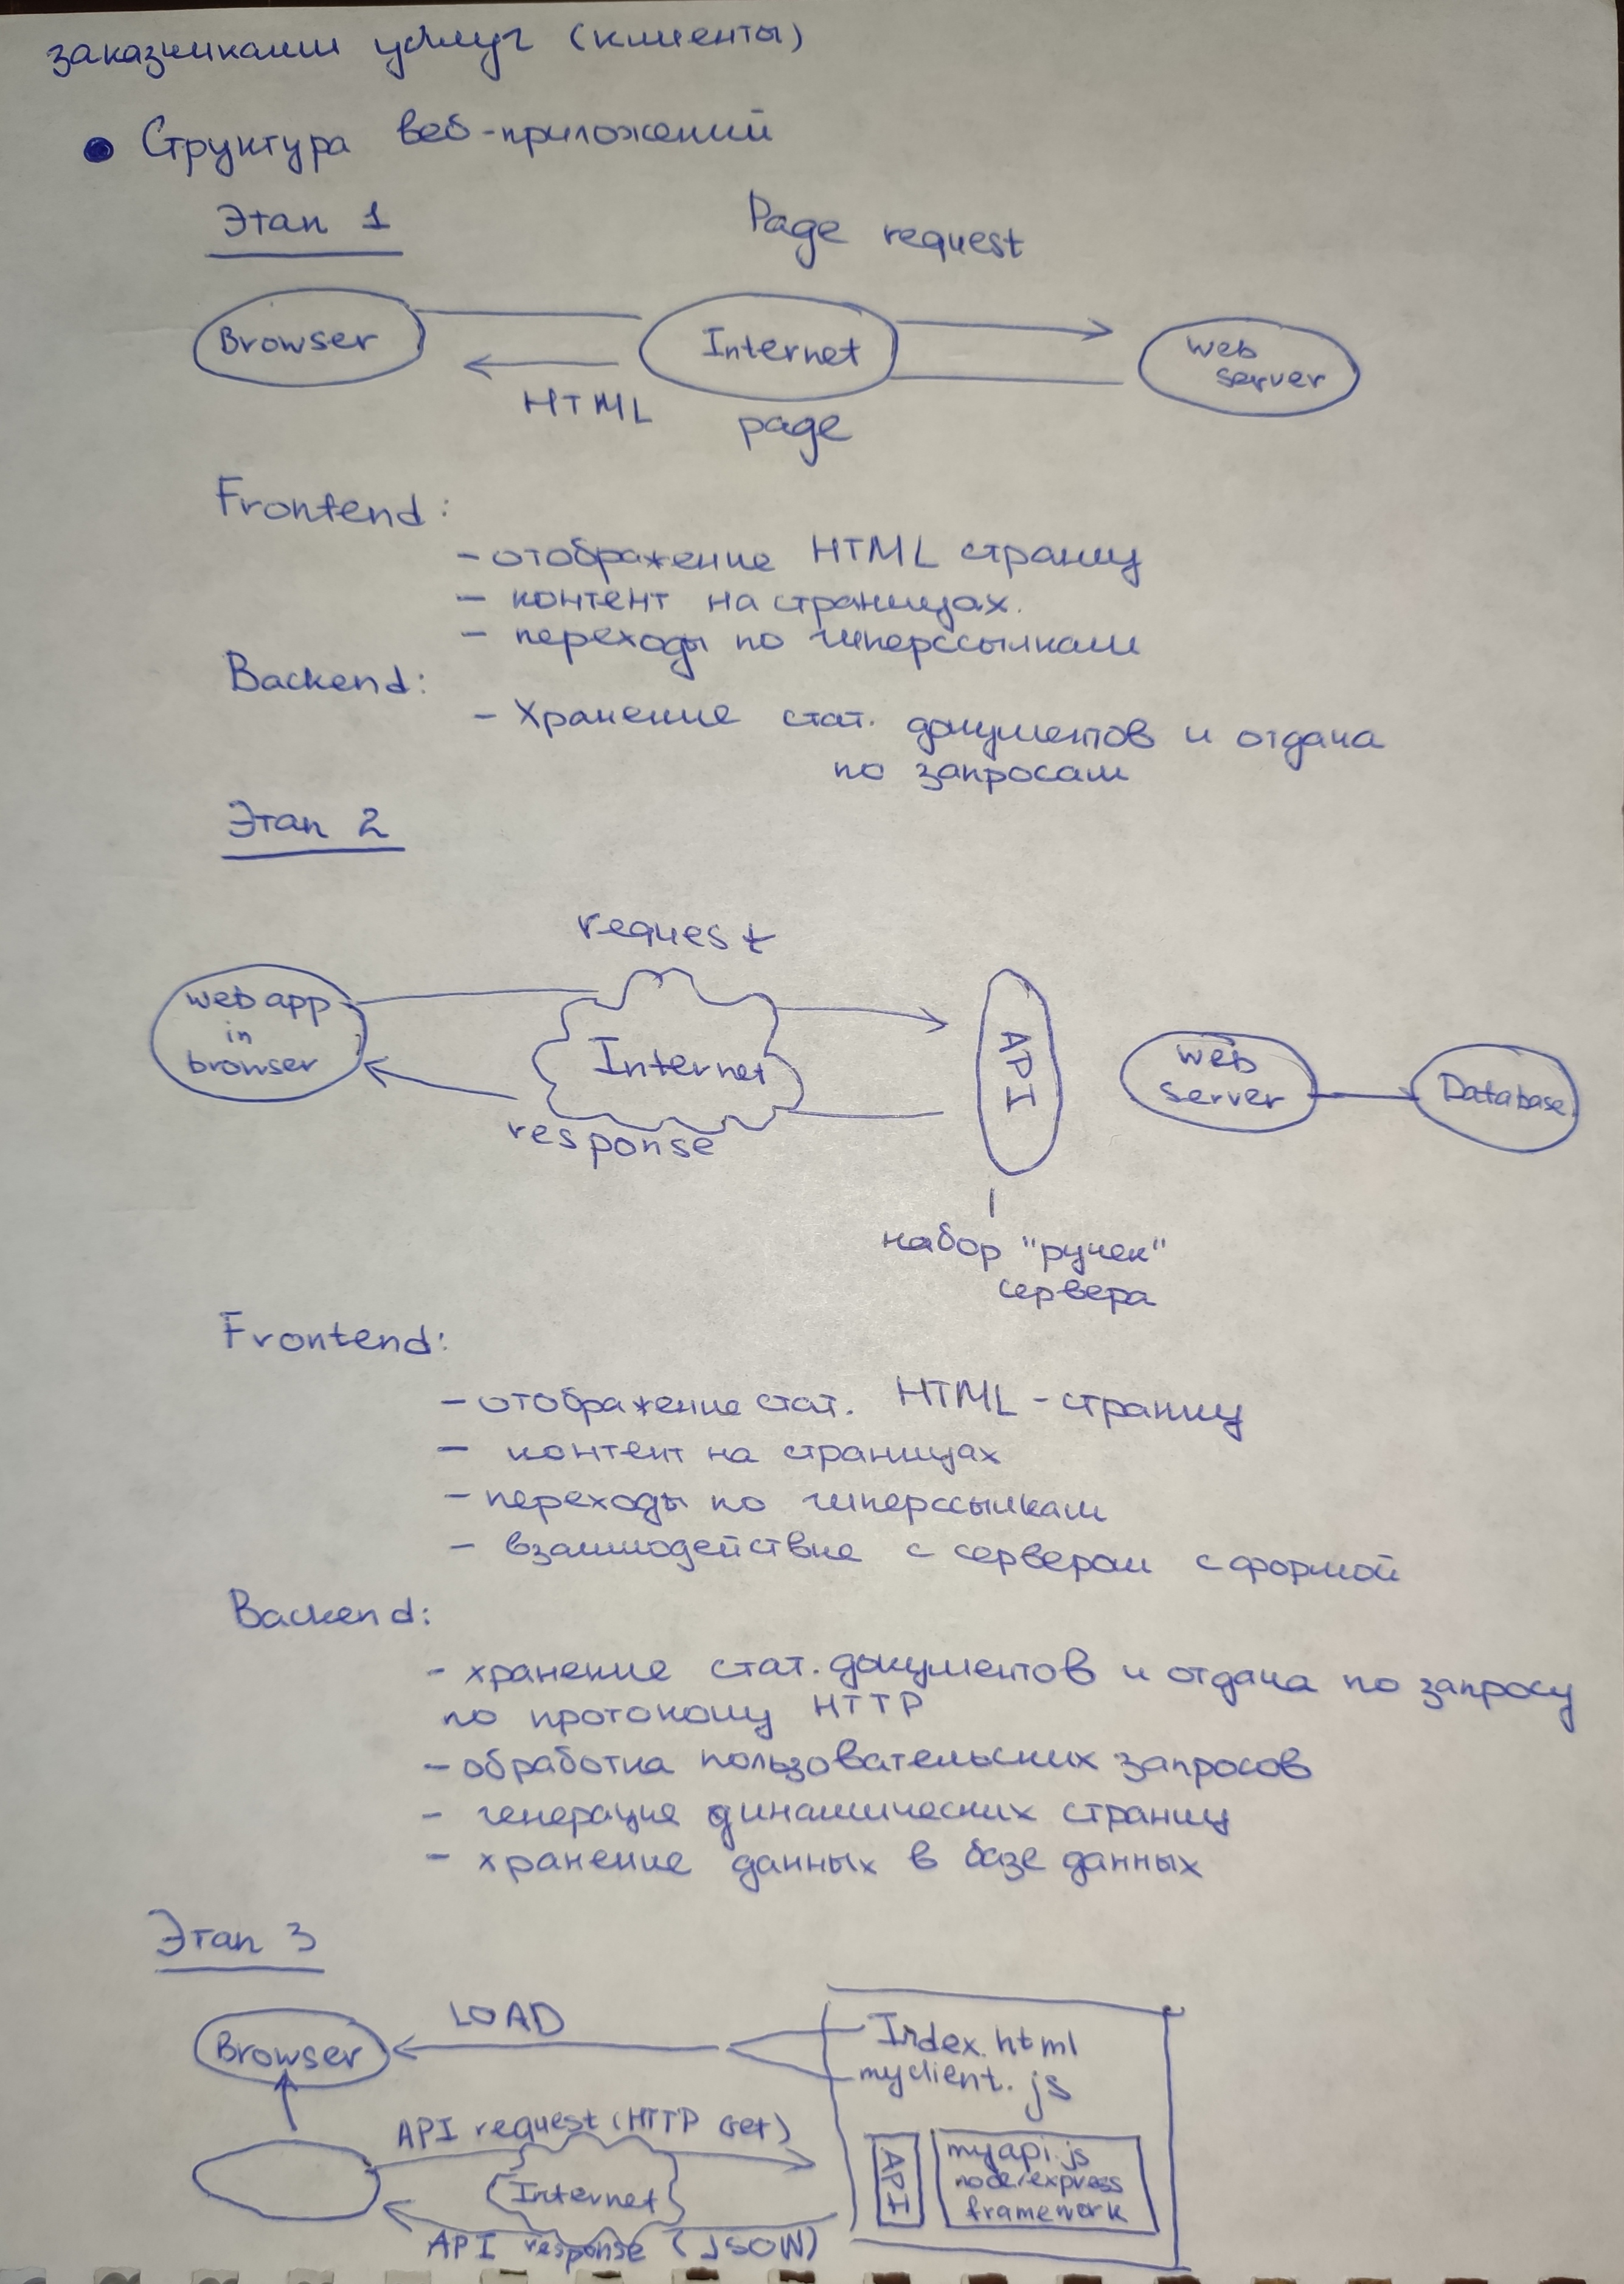 заказчиками услуг (клиенты)
Структура веб-приложений
Этап 1
Page request
Browser
Internet
web
server
HTML
page
Frontend:
- отображение HTML страниц
- контент на страницах.
- переходы по гиперссылкам
Backend:
- Хранение стат. документов и отдача
по запросам
Этап 2
request
web app
in
browser
Internet
API
web
server
Database
response
набор "ручек"
сервера
Frontend:
- отображение стат. HTML - страниц
- контент на страницах
- переходы по гиперссылкам
- взаимодействие с сервером с формой
Backend:
- хранение стат. документов и отдача по запросу
по протоколу HTTP
- обработка пользовательских запросов
- генерация динамических страниц
- хранение данных в базе данных
Этап 3
LOAD
Browser
Index.html
myclient.js
API request (HTTP Get)
Internet
API
myapi.js
node/express
framework
API response (JSON)